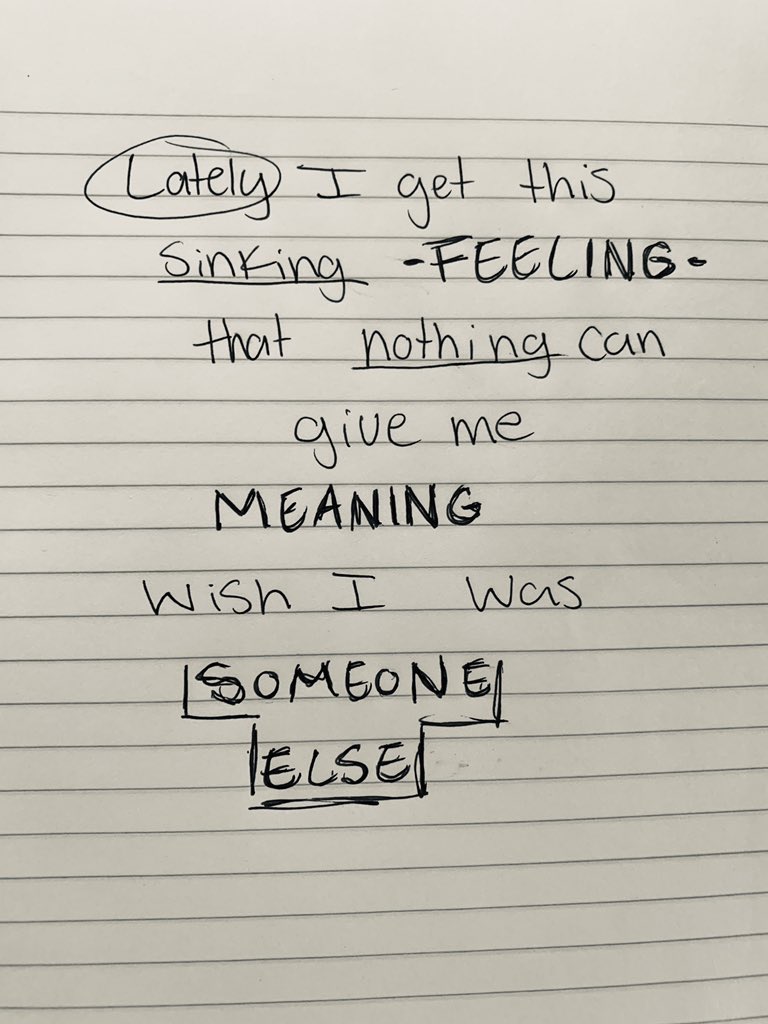 Lately I get this
sinking -FEELING-
that nothing can
give me
MEANING
Wish I was
SOMEONE
ELSE